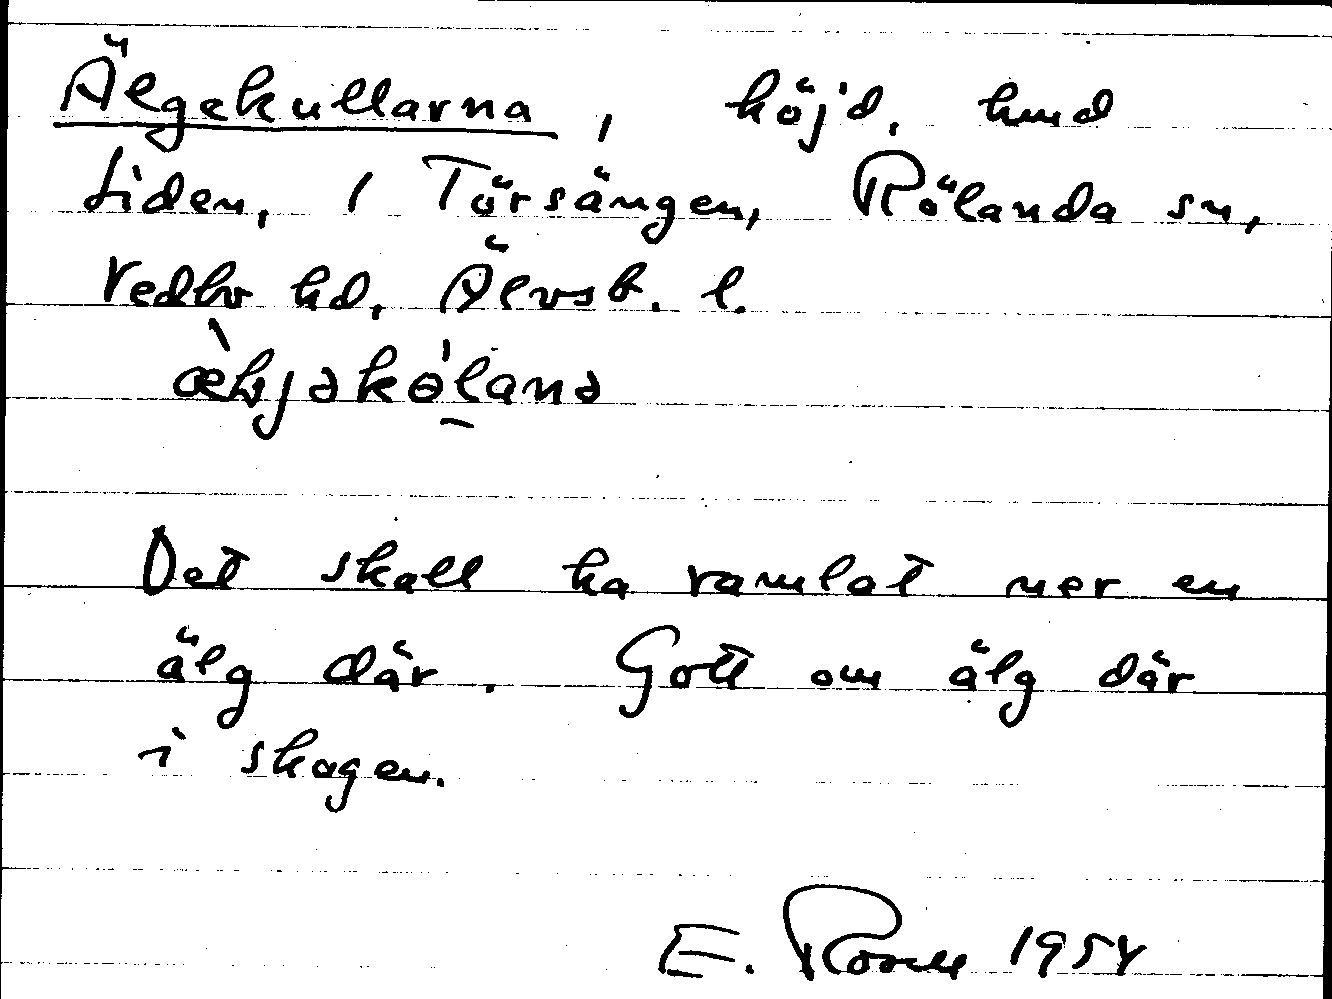 Älgekullarna, höjd, hmd
Liden, 1 Törsängen, Rölanda sn,
Vedbo hd, Älvsb. l.
Det skall ha ramlat ner en
älg där. Gott om älg där
i skogen.
E. 1954